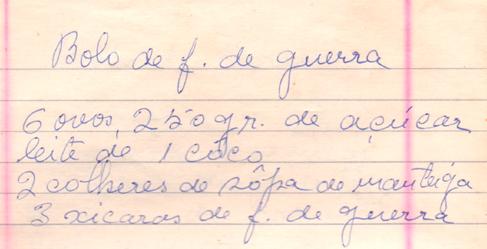 Bolo de f. de guerra
6 ovos, 250 gr. de açúcar
leite de 1 côco
2 colheres de sôpa de manteiga
3 xicaras de f. de guerra